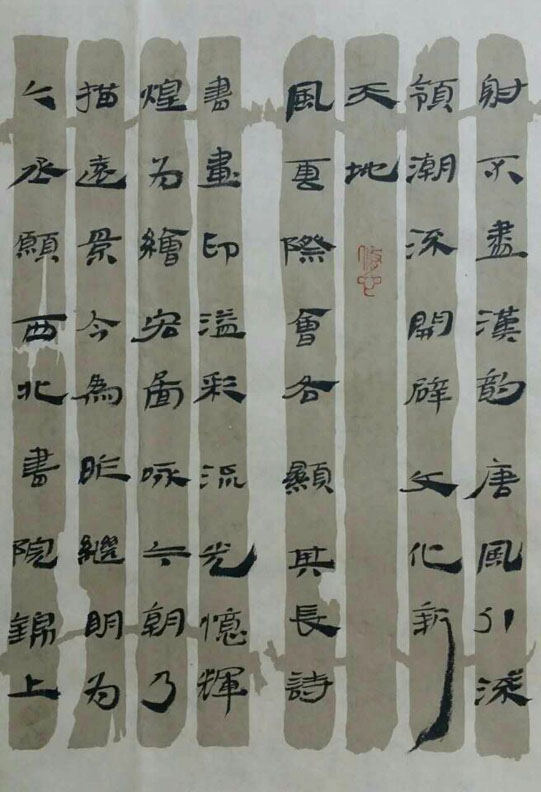 射不盡漢韵唐風引深
領潮深開辟文化新
天地
風雲際會各顯其長詩
書畫印溢彩流光憶輝
煌为繪宏圖咏六朝乃
描遠景今為昨繼明为
丞願西北書院錦上